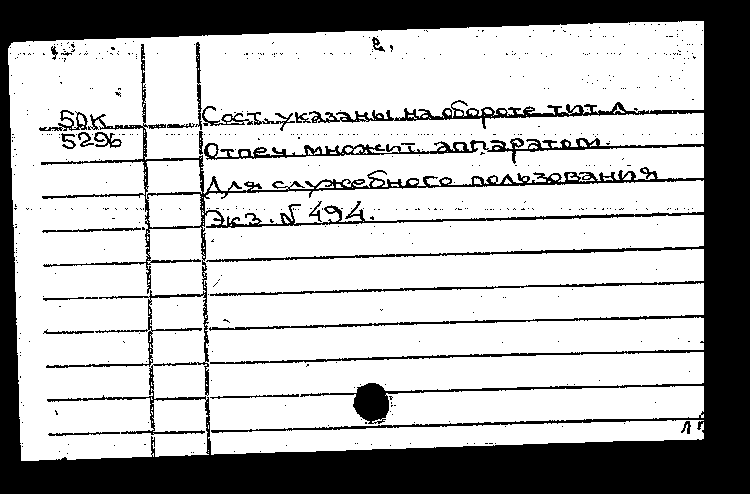 2.
50К Сост. указаны на обороте тит. л.
5296 Отпеч. множит. аппаратом.
Для служебного пользования
Экз. № 494.